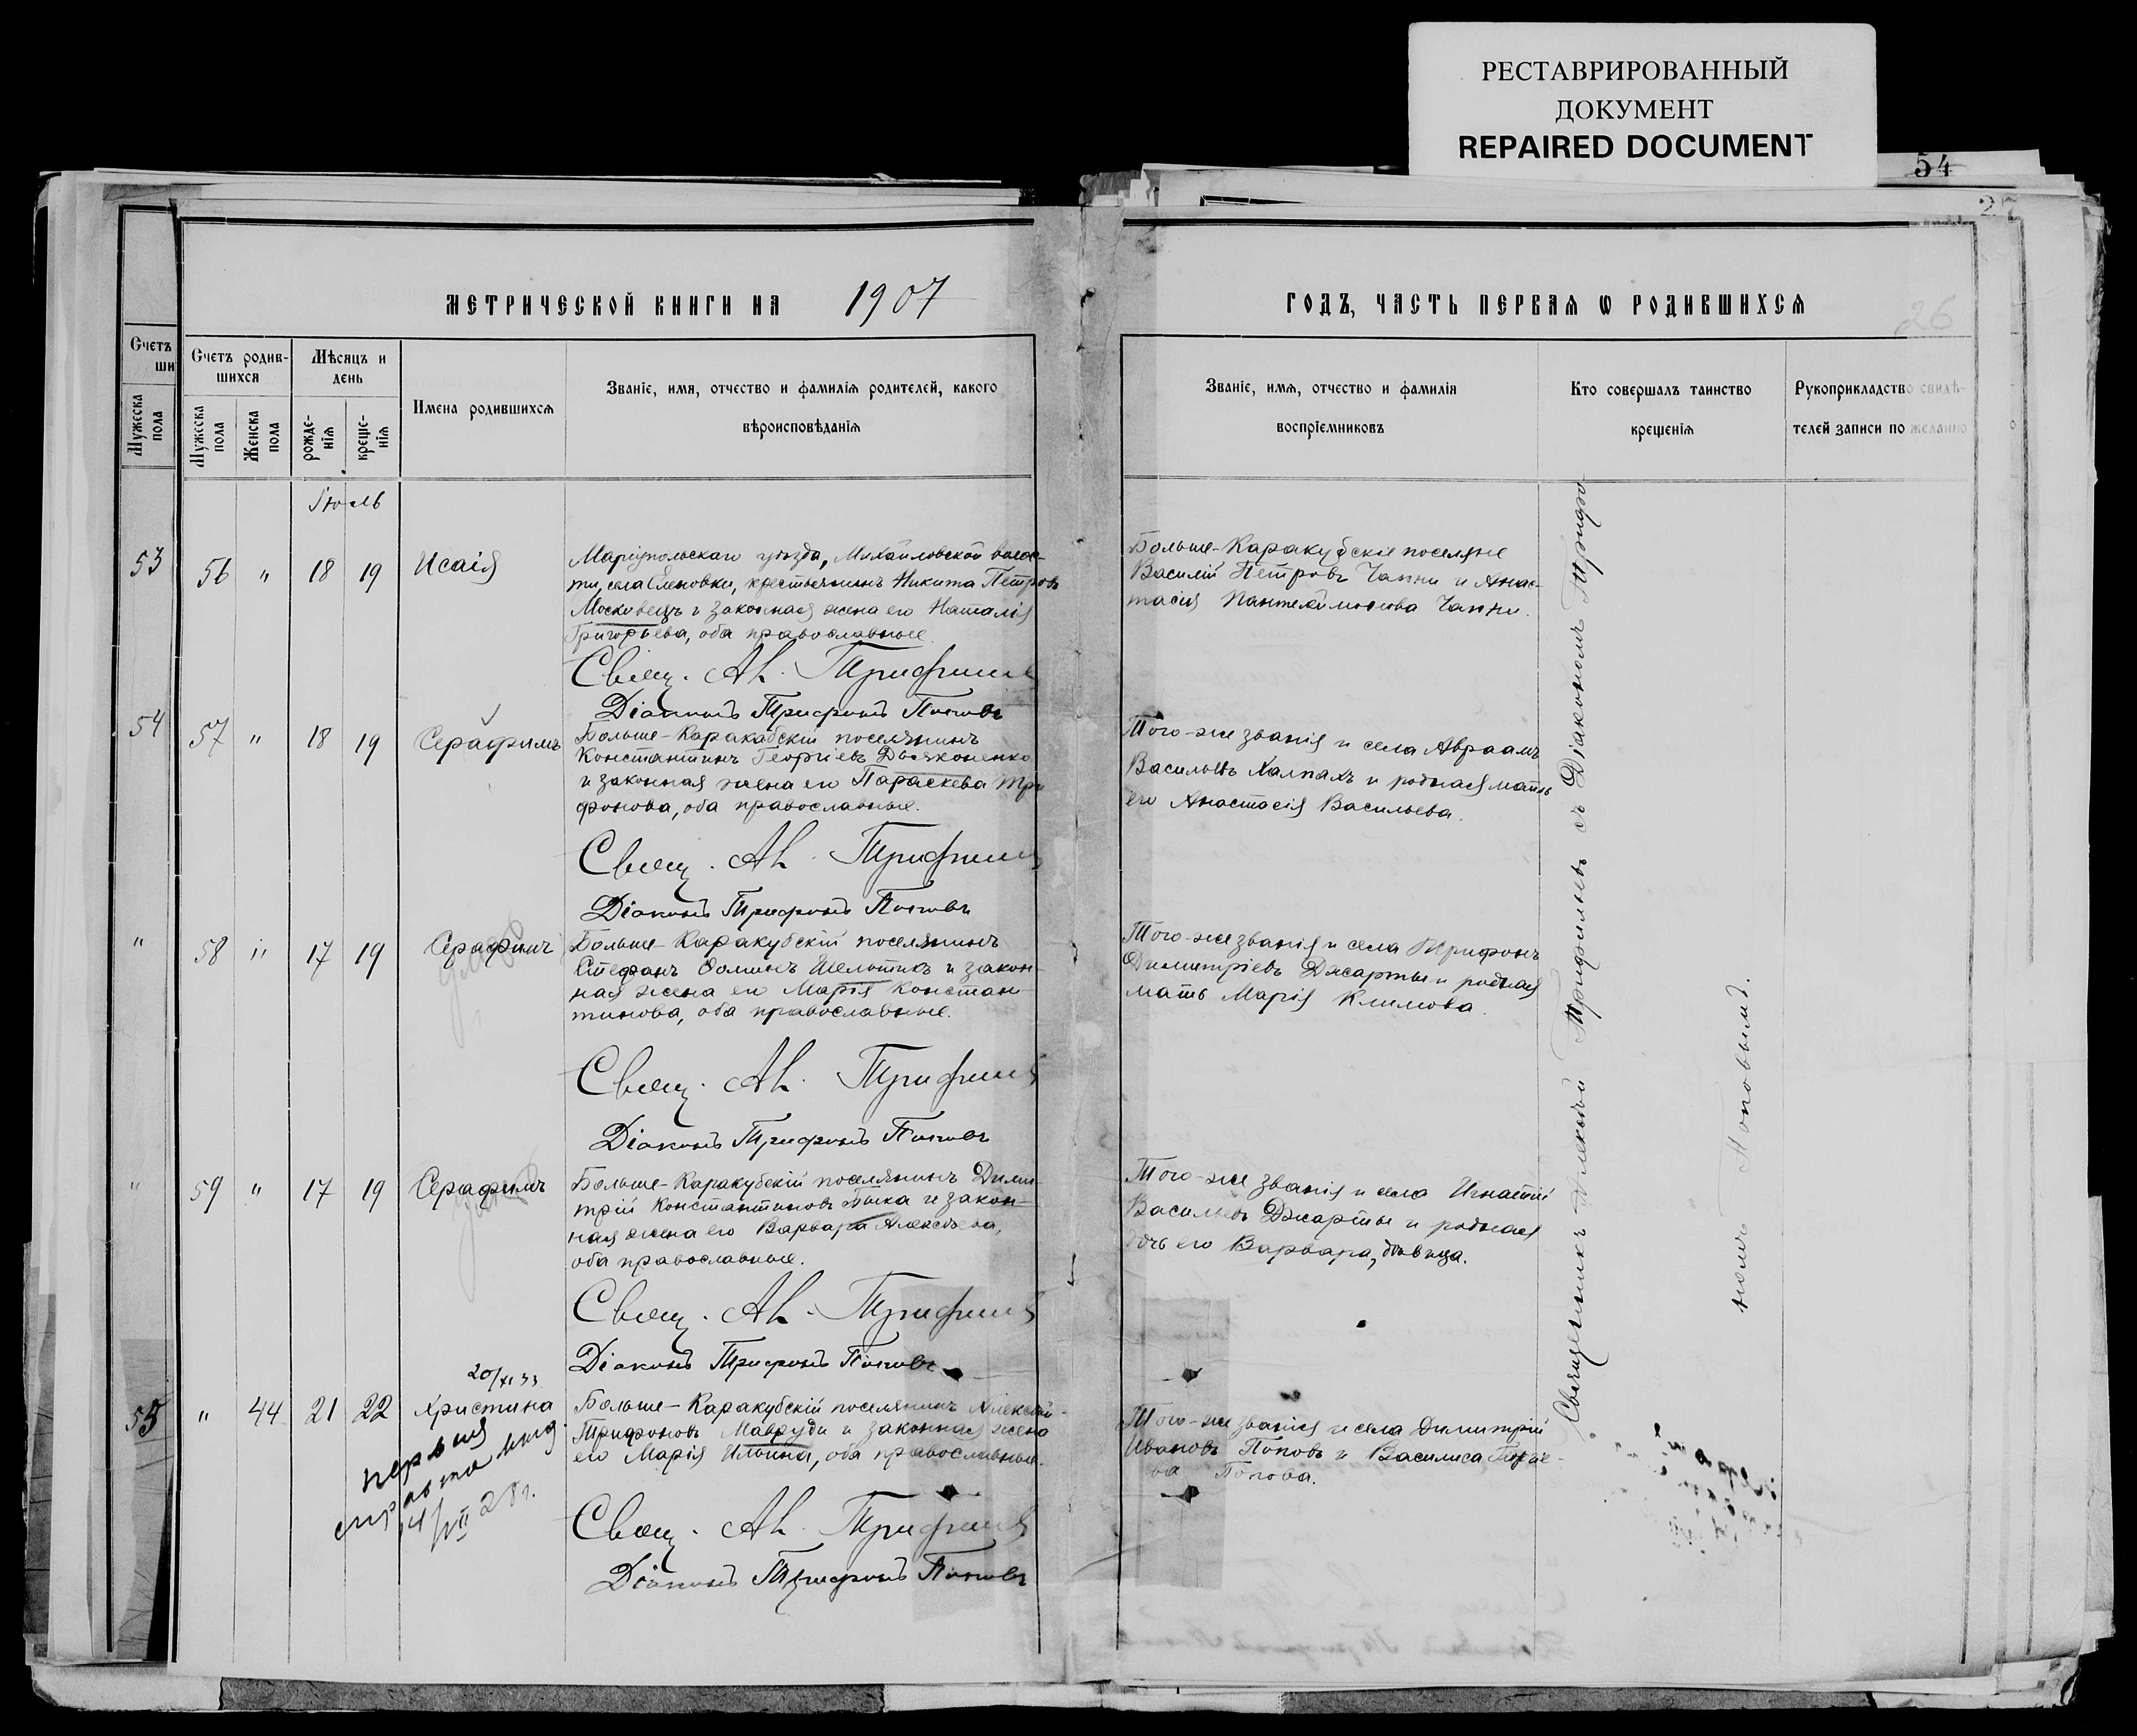 РЕСТАВРИРОВАННЫЙ
ДОКУМЕНТ
REPAIRED DOCUMENT
54
27
МЕТРИЧЕСКОЙ КНИГИ НА 1907
ГОДЪ, ЧАСТЬ ПЕРВАЯ Ѡ РОДИВШИХСЯ
26
Счетъ
ши
Мужеска пола
Счетъ родив-
шихся
Мужеска пола
Женска пола
Мѣсяцъ и
день
рожде-
нія
креще-
нія
Имена родившихся
Званіе, имя, отчество и фамилія родителей, какого
вѣроисповѣданія
Званіе, имя, отчество и фамилія
воспріемниковъ
Кто совершалъ таинство
крещенія
Рукоприкладство свидѣ-
телей записи по желанію
Іюль
53
56 " 18 19 Исаія
Маріупольскаго уѣзда, Михайловской волос-
ти, села Еленовки, крестьянинъ Никита Петровъ
Московецъ и законная жена его Наталія
Григорьева, оба православные.
Свящ. Ал. Трифиль
Діаконъ Трифонъ Поповъ
Больше-Каракубскіе поселяне
Василій Петровъ Чапни и Анас-
тасія Пантелеимонова Чапни.
54
57 " 18 19 Серафимъ
Больше-Каракубскій поселянинъ
Константинъ Георгіевъ Дьяконенко
и законная жена его Параскева Три
фонова, оба православные.
Свящ. Ал. Трифиль
Діаконъ Трифонъ Поповъ
Того-же званія и села Авраамъ
Васильевъ Халпахъ и родная мать
его Анастасія Васильева.
"
58 " 17 19 Серафимъ
Больше-Каракубскій поселянинъ
Стефанъ Ѳоминъ Шельтикъ и закон-
ная жена его Марія Констан-
тинова, оба православные.
Свящ. Ал. Трифиль
Діаконъ Трифонъ Поповъ
Того-же званія и села Трифонъ
Димитріевъ Джарты и родная
мать Марія Климова.
"
59 " 17 19 Серафимъ
Больше-Каракубскій поселянинъ Дими-
трій Константиновъ Быка и закон-
ная жена его Варвара Алексѣева,
оба православные.
Свящ. Ал. Трифиль
Діаконъ Трифонъ Поповъ
Того-же званія и села Игнатій
Васильевъ Джарты и родная
дочь его Варвара, дѣвица.
20/XI 33
55
" 44 21 22 Христина
Больше-Каракубскій поселянинъ Алексѣй
Трифоновъ Мавруди и законная жена
его Марія Ильина, оба православные.
Свящ. Ал. Трифиль
Діаконъ Трифонъ Поповъ
Того-же званія и села Димитрій
Ивановъ Поповъ и Василиса
ва Попова.
14/VII 28 г.
Священникъ Алексѣй Трифильъ съ Діакономъ Трифо-
номъ Поповымъ.